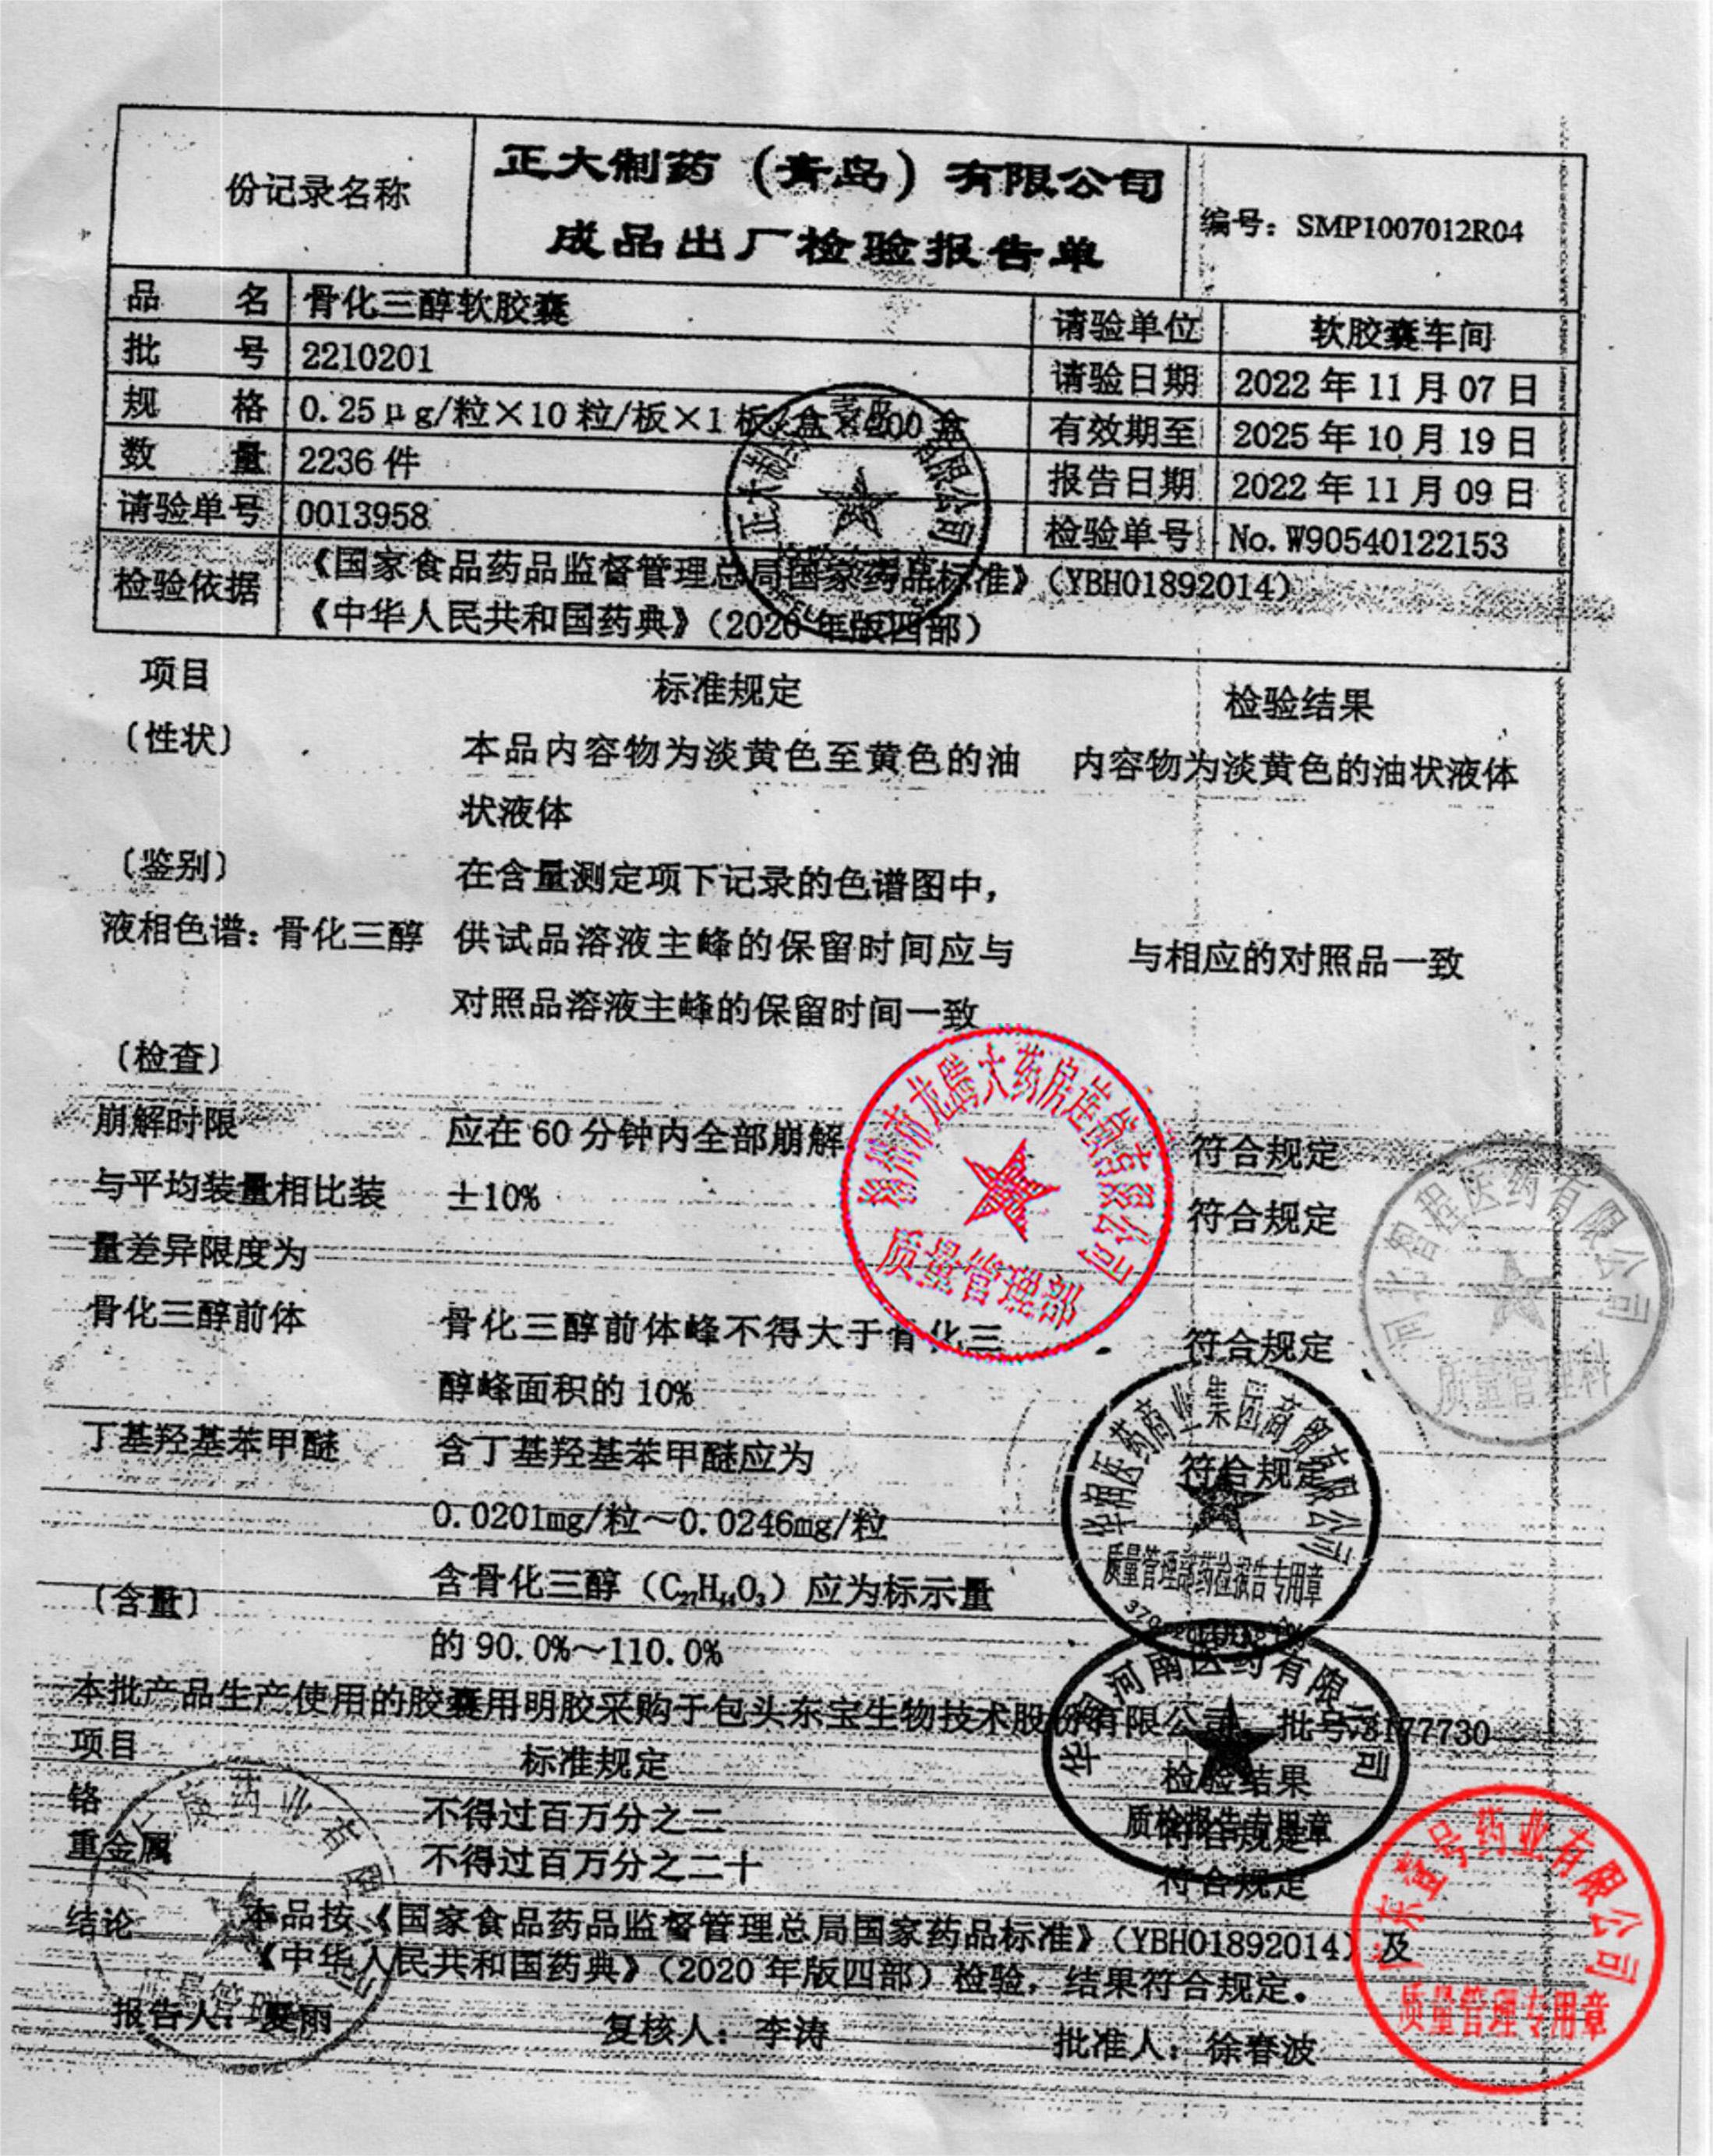 份记录名称
正大制药（青岛）有限公司
成品出厂检验报告单
编号：SMP1007012R04
品名 骨化三醇软胶囊 请验单位 软胶囊车间
批号 2210201 请验日期 2022年11月07日
规格 0.25μg/粒×10粒/板×1板/盒×400盒 有效期至 2025年10月19日
数量 2236件 报告日期 2022年11月09日
请验单号 0013958 检验单号 No.W90540122153
检验依据 《国家食品药品监督管理总局国家药品标准》（YBH01892014）
《中华人民共和国药典》（2020年版四部）
正大制药 有限公司
项目 标准规定 检验结果
〔性状〕 本品内容物为淡黄色至黄色的油 内容物为淡黄色的油状液体
状液体
〔鉴别〕 在含量测定项下记录的色谱图中，
液相色谱：骨化三醇 供试品溶液主峰的保留时间应与 与相应的对照品一致
对照品溶液主峰的保留时间一致
〔检查〕
崩解时限 应在60分钟内全部崩解 符合规定
与平均装量相比装 ±10% 符合规定
量差异限度为
骨化三醇前体 骨化三醇前体峰不得大于骨化三 符合规定
醇峰面积的10%
丁基羟基苯甲醚 含丁基羟基苯甲醚应为 符合规定
0.0201mg/粒～0.0246mg/粒
〔含量〕 含骨化三醇（C27H44O3）应为标示量
的90.0%～110.0%
市龙腾大药房连锁有限公司
质量管理部
河北智程医药有限公司
质量管理科
华润医药商业集团商贸有限公司
质量管理部药检报告专用章
本批产品生产使用的胶囊用明胶采购于包头东宝生物技术股份有限公司 批号:3177730
华润河南医药有限公司
质检报告专用章
项目 标准规定 检验结果
铬 不得过百万分之二 符合规定
重金属 不得过百万分之二十 符合规定
结论 本品按《国家食品药品监督管理总局国家药品标准》（YBH01892014）及
《中华人民共和国药典》（2020年版四部）检验，结果符合规定。
报告人：夏雨 复核人：李涛 批准人：徐春波
药业有限
东壹号药业有限公司
质量管理专用章